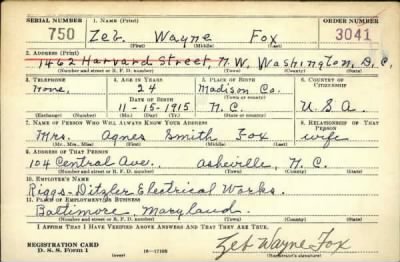 SERIAL NUMBER 1. NAME (Print) ORDER NUMBER
750 Zeb. Wayne Fox 3041
(First) (Middle) (Last)
2. ADDRESS (Print)
1462 Harvard Street, N.W. Washington, D.C.
(Number and street or R. F. D. number) (Town) (County) (State)
3. TELEPHONE 4. AGE IN YEARS 5. PLACE OF BIRTH 6. COUNTRY OF CITIZENSHIP
None, 24 Madison Co.
DATE OF BIRTH
11-15-1915 N.C. U.S.A.
(Exchange) (Number) (Mo.) (Day) (Yr.) (State or country)
7. NAME OF PERSON WHO WILL ALWAYS KNOW YOUR ADDRESS 8. RELATIONSHIP OF THAT PERSON
Mrs. Agnes Smith Fox wife
(Mr., Mrs., Miss) (First) (Middle) (Last)
9. ADDRESS OF THAT PERSON
104 Central Ave. Asheville, N.C.
(Number and street or R. F. D. number) (Town) (County) (State)
10. EMPLOYER'S NAME
Riggs-Ditzler Electrical Works.
11. PLACE OF EMPLOYMENT OR BUSINESS
Baltimore, Maryland.
(Number and street or R. F. D. number) (Town) (County) (State)
I AFFIRM THAT I HAVE VERIFIED ABOVE ANSWERS AND THAT THEY ARE TRUE.
REGISTRATION CARD
D. S. S. Form 1 (over) 16-17105 Zeb Wayne Fox
(Registrant's signature)